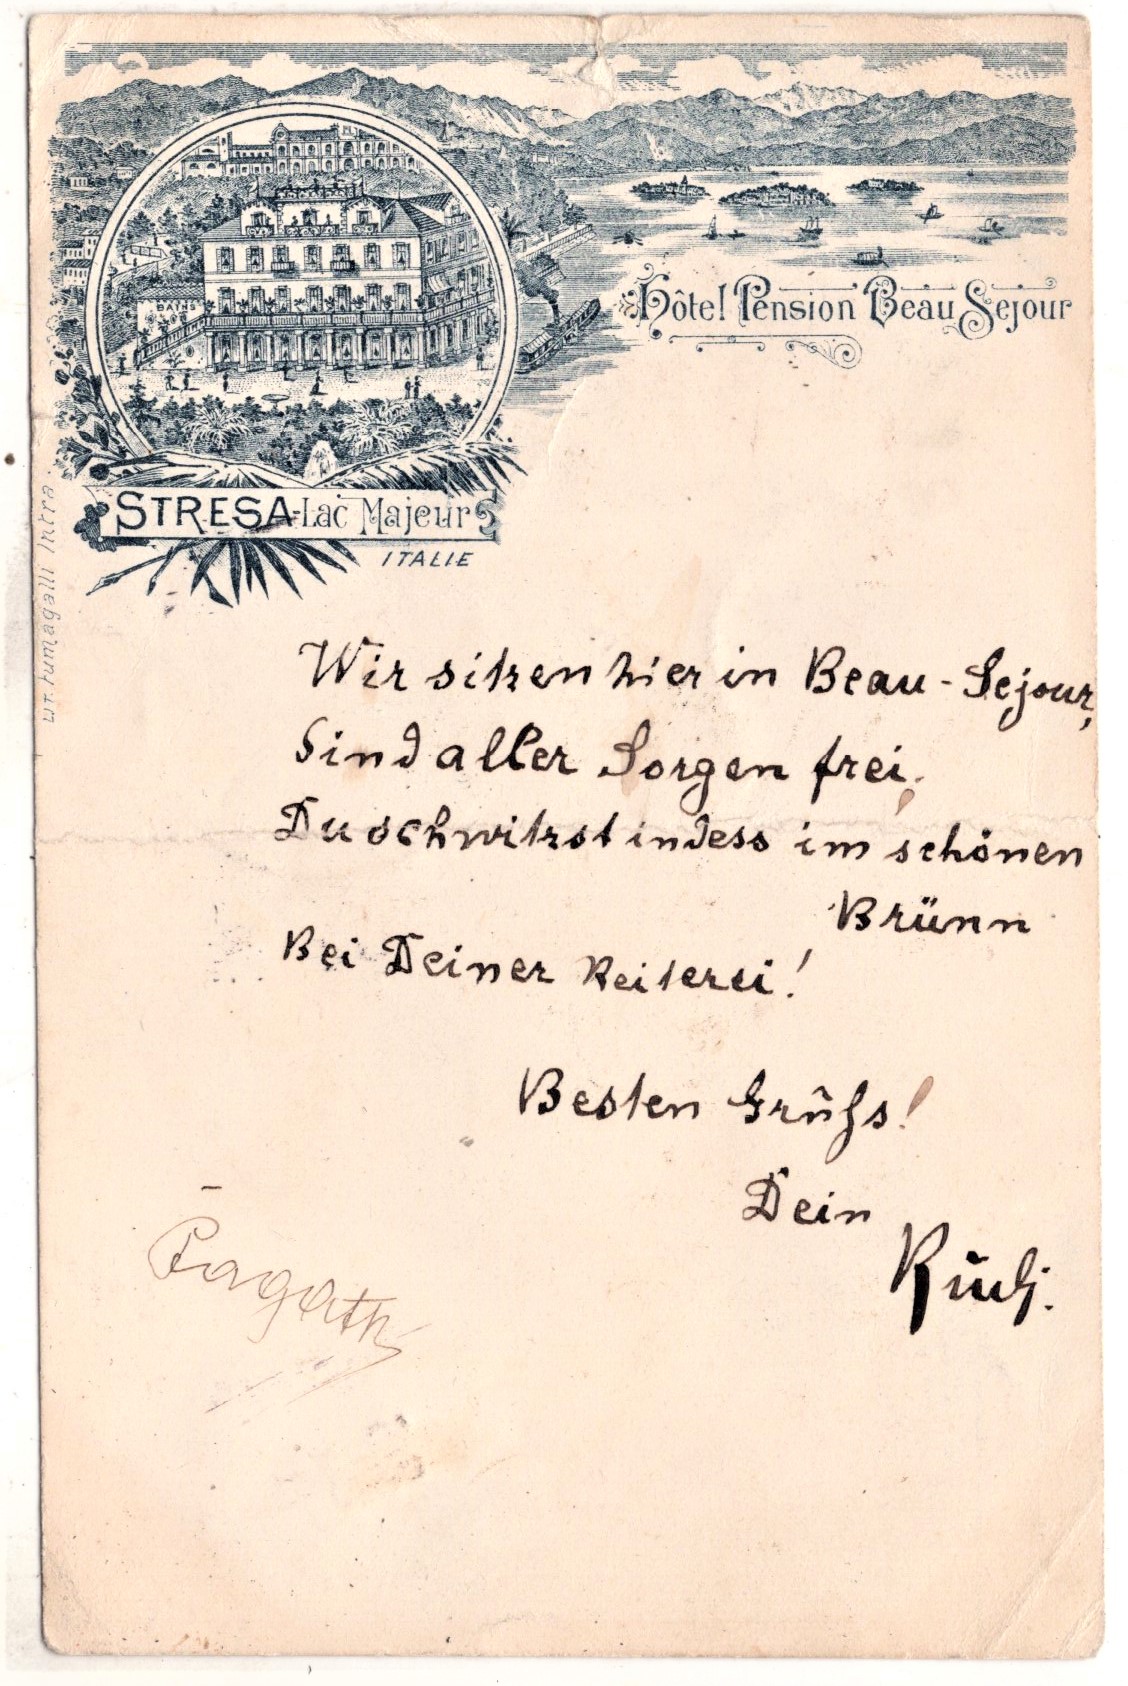 BAINS
Hôtel Pension Beau Sejour
STRESA-Lac Majeur
ITALIE
Wir sitzen hier in Beau-Sejour,
Sind aller Sorgen frei.
Du schwitzst indess im schönen
Brünn
Bei Deiner Reiterei!
Besten Grûſs!
Dein
Rudi.